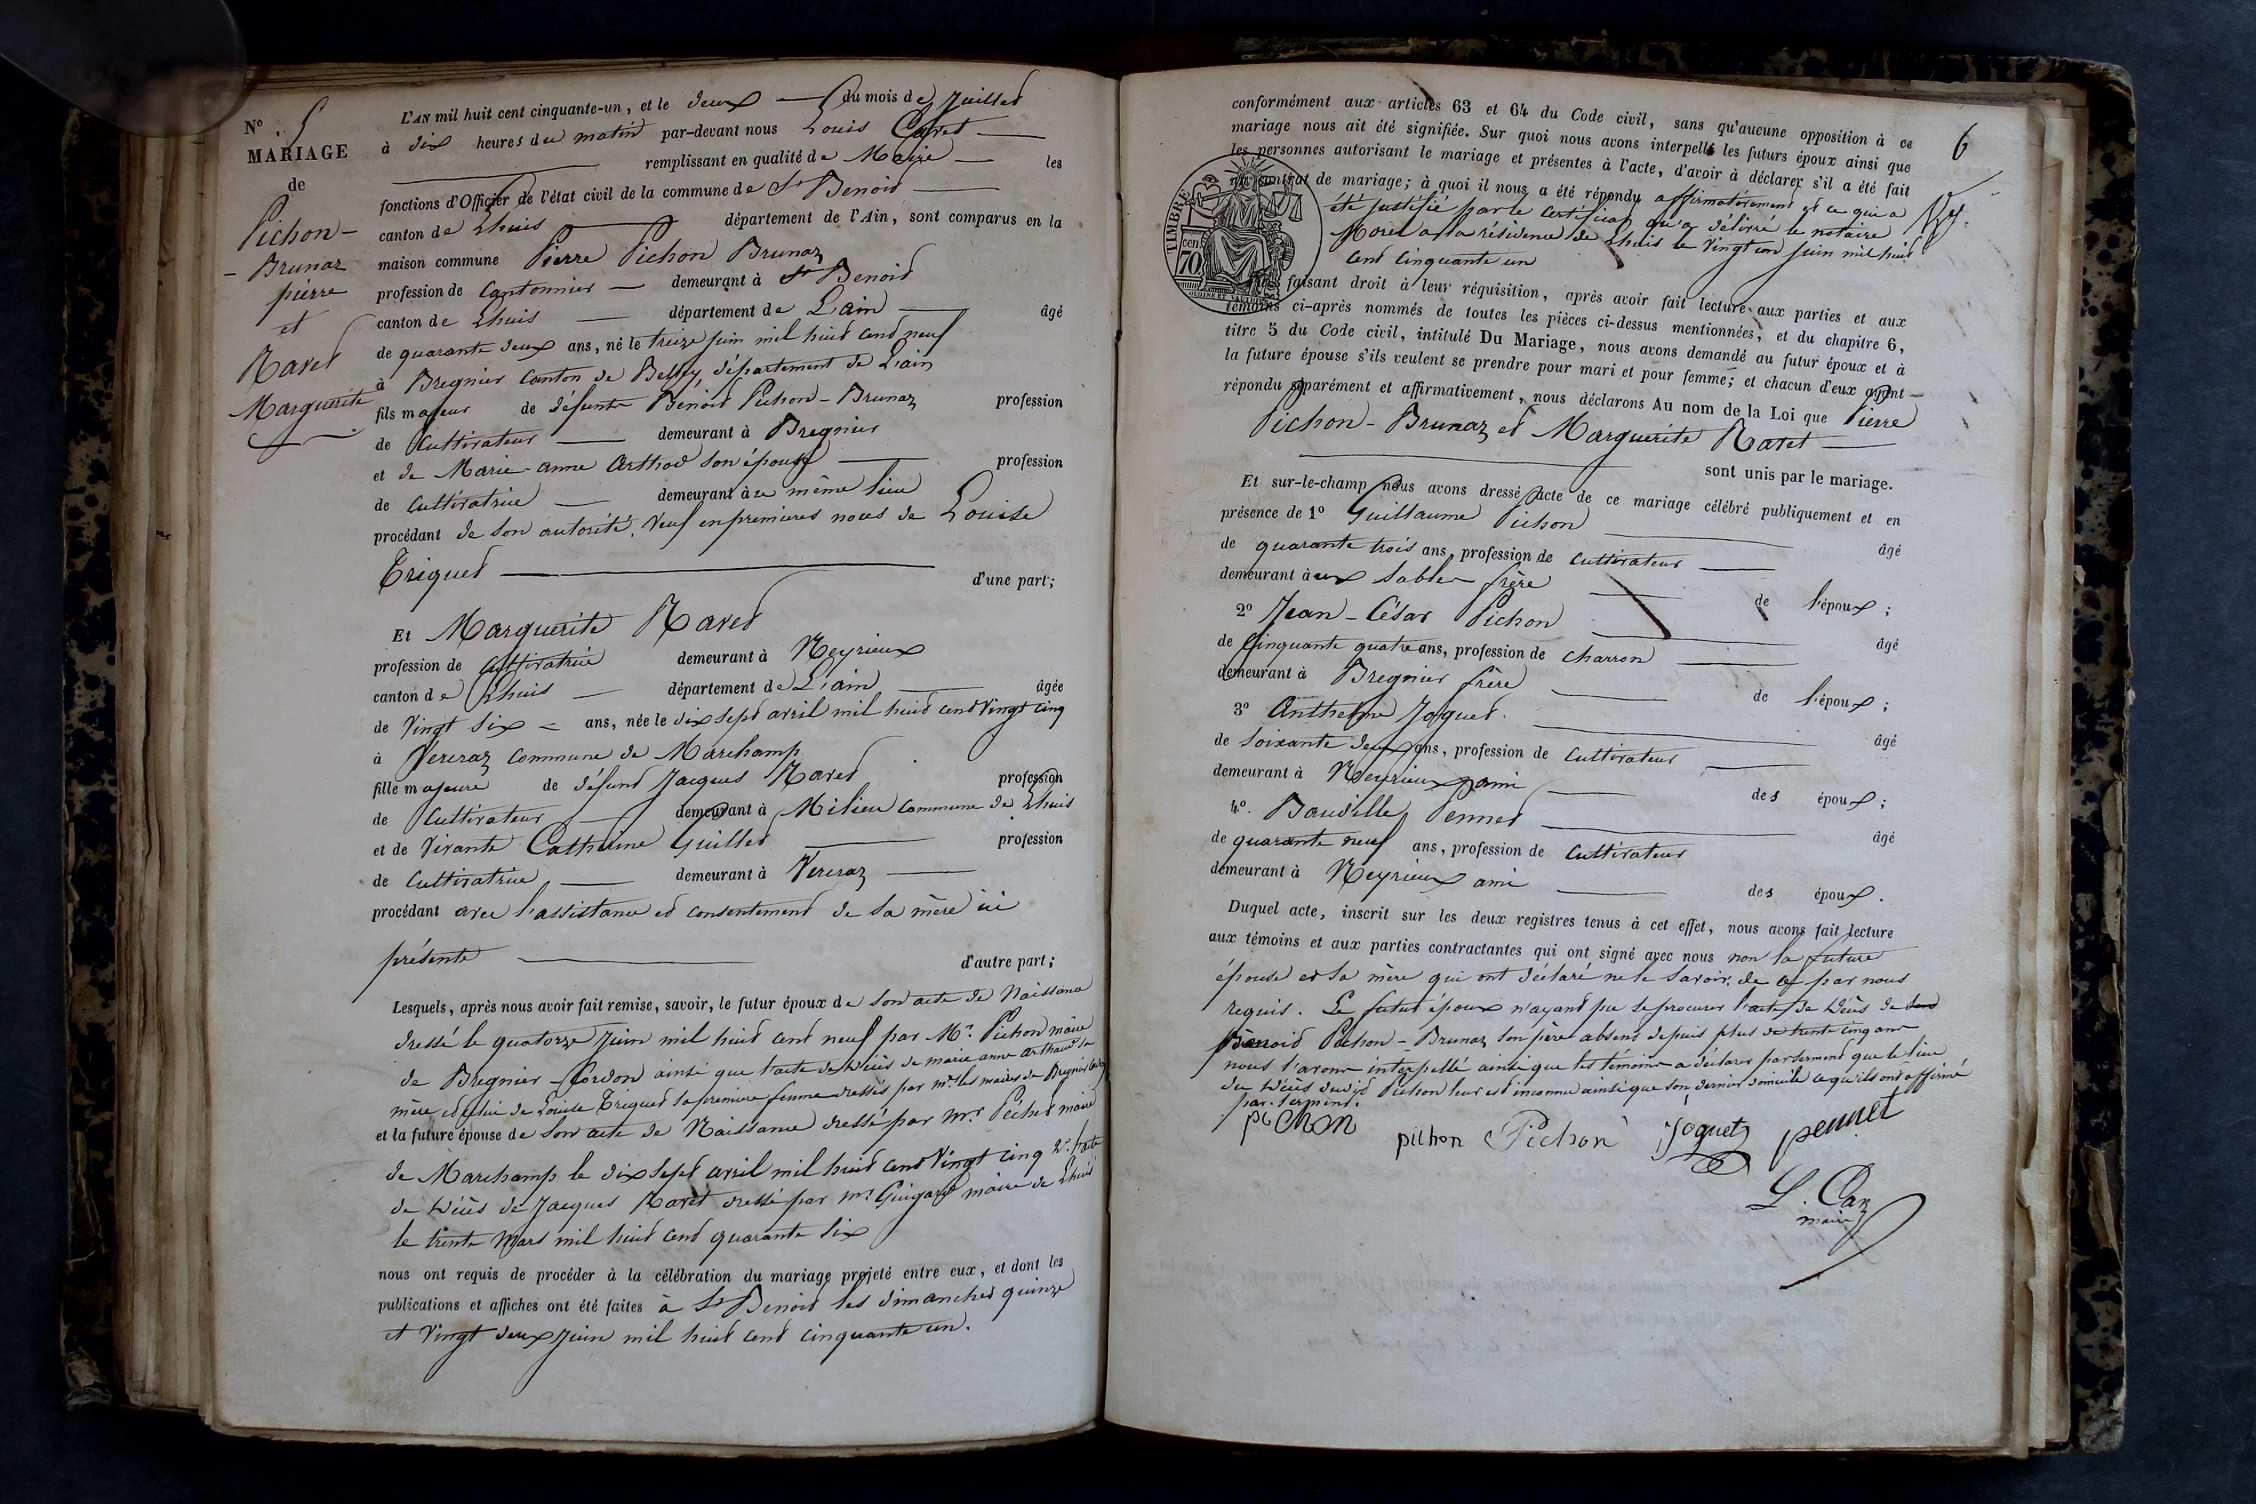 N° 5
MARIAGE
de
Pichon-
- Brunaz
pierre
et
Ravet
Marguerite
L'AN mil huit cent cinquante-un, et le deux du mois de Juillet
à dix heures du matin par-devant nous Louis
remplissant en qualité de Maire les
fonctions d'Officier de l'état civil de la commune de St Benoit
canton de Lhuis département de l'Ain, sont comparus en la
maison commune Pierre Pichon Brunaz
profession de Cantonnier demeurant à St Benoit
canton de Lhuis département de L'ain âgé
de quarante deux ans, né le treize juin mil huit cent neuf
à Bregnier Canton de Belley, département de L'ain
fils majeur de défunt Benoit Pichon-Brunaz profession
de Cultivateur demeurant à Bregnier
et de Marie-anne Arthod son épouse profession
de Cultivatrice demeurant à ce même lieu
procédant de son autorité. Veuf en premieres noces de Louise
Triquet d'une part;
Et Marguerite Ravet
profession de Cultivatrice demeurant à Neyrieux
canton de Lhuis département de L'ain âgée
de Vingt six ans, née le dix sept avril mil huit cent Vingt cinq
à Vereraz Commune de Marchamp
fille majeure de défunt Jacques Ravet profession
de Cultivateur demeurant à Milieu Commune de Lhuis
et de Vivante Catherine Guillet profession
de Cultivatrice demeurant à Vereraz
procédant avec l'assistance et consentement de sa mère ici
présente d'autre part;
Lesquels, après nous avoir fait remise, savoir, le futur époux de son acte de Naissance
dressé le quatorze Juin mil huit cent neuf par Mr. Pichon maire
de Bregnier-Cordon ainsi que l'acte de décès de marie anne arthaud sa
mère et celui de Louise Triquet sa premiere femme dressés par mrs les maires de Bregnier Cordon
et la future épouse de son acte de Naissance dressé par Mr Péchet maire
de Marchamp le dix sept avril mil huit cent Vingt cinq 2° l'acte
de décès de Jacques Ravet dressé par mr Guigard maire de Lhuis
le trente Mars mil huit cent quarante six
nous ont requis de procéder à la célébration du mariage projeté entre eux, et dont les
publications et affiches ont été faites à St Benoit les dimanches quinze
et Vingt deux Juin mil huit cent cinquante un.
6
conformément aux articles 63 et 64 du Code civil, sans qu'aucune opposition à ce
mariage nous ait été signifiée. Sur quoi nous avons interpellé les futurs époux ainsi que
les personnes autorisant le mariage et présentes à l'acte, d'avoir à déclarer s'il a été fait
un contrat de mariage; à quoi il nous a été répondu affirmativement et ce qui a
été justifié par le Certificat qu'a délivré le notaire
Morel a la résidence de Lhuis le Vingt un Juin mil huit
cent Cinquante un
TIMBRE
70 cen
faisant droit à leur réquisition, après avoir fait lecture aux parties et aux
témoins ci-après nommés de toutes les pièces ci-dessus mentionnées, et du chapitre 6,
titre 5 du Code civil, intitulé Du Mariage, nous avons demandé au futur époux et à
la future épouse s'ils veulent se prendre pour mari et pour femme; et chacun d'eux ayant
répondu séparément et affirmativement, nous déclarons Au nom de la Loi que Pierre
Pichon-Brunaz et Marguerite Ravet
sont unis par le mariage.
Et sur-le-champ nous avons dressé acte de ce mariage célébré publiquement et en
présence de 1° Guillaume Pichon âgé
de quarante trois ans, profession de Cultivateur
demeurant à ux Sables frère de l'époux;
2° Jean-César Pichon âgé
de Cinquante quatre ans, profession de Charron
demeurant à Bregnier frère de l'époux;
3° Anthelme Joguet. âgé
de soixante deux ans, profession de Cultivateur
demeurant à Neyrieux ami des époux;
4°. Baudille Pennet âgé
de quarante neuf ans, profession de Cultivateur
demeurant à Neyrieux ami des époux.
Duquel acte, inscrit sur les deux registres tenus à cet effet, nous avons fait lecture
aux témoins et aux parties contractantes qui ont signé avec nous non la future
épouse et sa mère qui ont déclaré ne le savoir, de ce par nous
requis. Le futur époux n'ayant pu se procurer l'acte de décès de
Benoit Pichon-Brunaz son père absent depuis plus de trente cinq ans
nous l'avons interpellé ainsi que les témoins a déclarer par serment que le lieu
du décès dudit Pichon leur est inconnu ainsi que son dernier domicile ce qu'ils ont affirmé
par serment.
pichon pichon Pichon Joguet pennet
L. Can
maire